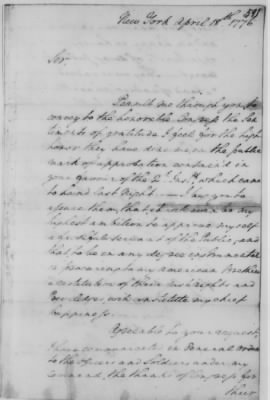 New York April 18th 1776
Sir
Permit me through you to
convey to the honorable Congress the Sen
timents of gratitude I feel for the high
honor they have done me in the public
mark of approbation contained in
your favor of the 2d Inst. which came
to hand last Night — I beg you to
assure them, that it will ever be my
highest ambition to approve myself
a faithful servant of the Public, and
that to be in any degree instrumental
in procuring to my american Brethren
a restitution of their just rights and
Privileges, will constitute my chief
happiness —
Agreeable to your request,
I have communicated in General orders
to the officers and Soldiers under my
command, the thanks of Congress for
their